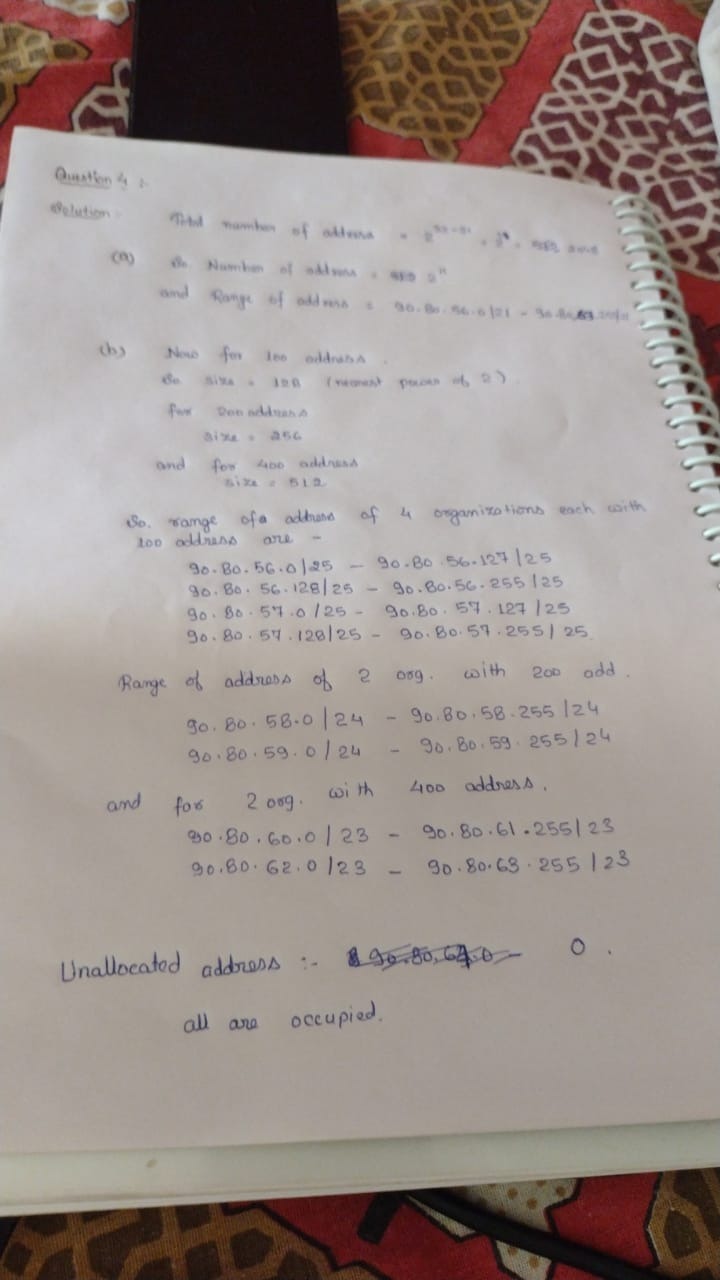 Question 4 :-
Solution: Total number of address = 2
(a) So Number of address = 2¹¹
and Range of address = 90.80.56.0/21 - 90.80.63.
(b) Now for 100 address
So size = 128 (nearest power of 2)
for 200 address
size = 256
and for 400 address
size = 512
So. range of a address of 4 organizations each with
100 address are -
90.80.56.0/25 - 90.80.56.127/25
90.80.56.128/25 - 90.80.56.255/25
90.80.57.0/25 - 90.80.57.127/25
90.80.57.128/25 - 90.80.57.255/25
Range of address of 2 org. with 200 add.
90.80.58.0/24 - 90.80.58.255/24
90.80.59.0/24 - 90.80.59.255/24
and for 2 org. with 400 address.
90.80.60.0/23 - 90.80.61.255/23
90.80.62.0/23 - 90.80.63.255/23
Unallocated address :- 0.
all are occupied.